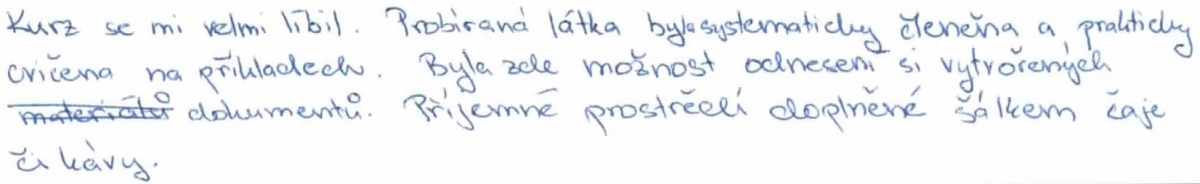 Kurz se mi velmi líbil. Probíraná látka byla systematicky členěna a prakticky
cvičena na příkladech. Byla zde možnost odnesení si vytvořených
materiálů dokumentů. Příjemné prostředí doplněné šálkem čaje
či kávy.